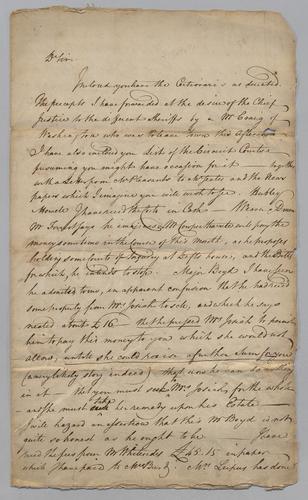 Dr Sir
Inclosed you have the Certioraris as directed.
The precepts I have forwarded at the desire of the Chief
Justice to the different Sheriffs by a Mr Craig of
Washington who was to leave Town this afternoon
I have also inclosed you a list of the Circuit Courts
presuming you might have occasion for it together
with a Letter from Mr and the News
papers which I imagine you will wish to see.
I have received the in Cash
Mr says he will pay the
money sometime in the course of this Month, as he proposes
holding some Courts of at house, and the
for which, he intends to stop. Major Boyd I have seen
he admitted to me, in apparent confusion that he had received
some property from Mrs Josiah to sell, and which he says
neated about £16 that he pressed Mrs Josiah to permit
him to pay this money to you which she would not
allow, untill she could raise a further Sum for you
(a very likely story indeed)
in it that you must Mrs Josiah for the whole
and she must take her remedy upon his Estate
I will hazard an assertion that this Mr Boyd is not
quite so honest as he ought to be I have
recd the from Mr £45.15 in paper
which I have paid to Mr has done